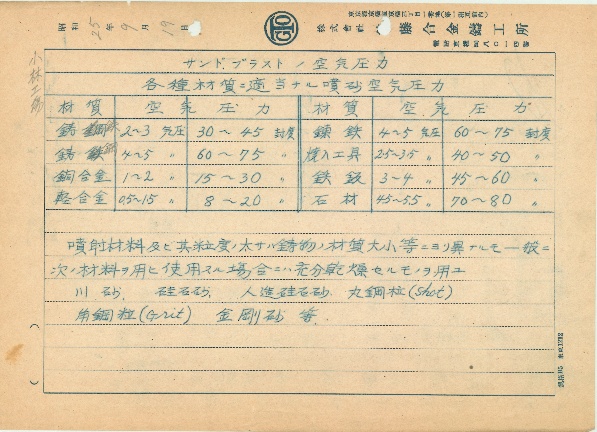 昭和25年9月19日
株式会社 藤合金鋳工所
小林工場
サンドブラストノ空気圧力
各種材質ニ適当ナル噴砂空気圧力
材質 空気圧力 材質 空気圧力
鋳鉄 2~3 気圧 30~45 封度 錬鉄 4~5 気圧 60~75 封度
鋳鋼 4~5 〃 60~75 〃 焼入工具 2.5~3.5 〃 40~50 〃
銅合金 1~2 〃 15~30 〃 鉄鈑 3~4 〃 45~60 〃
軽合金 0.5~1.5 〃 8~20 〃 石材 4.5~5.5 〃 70~80 〃
噴射材料及ビ其粒度ノ大サハ鋳物ノ材質大小等ニヨリ異ナルモ一般ニ
次ノ材料ヲ用ヒ使用スル場合ニハ充分乾燥セルモノヲ用ユ
川砂、 硅石砂、 人造硅石砂、 丸鋼粒(Shot)
角鋼粒(Grit) 金剛砂 等.